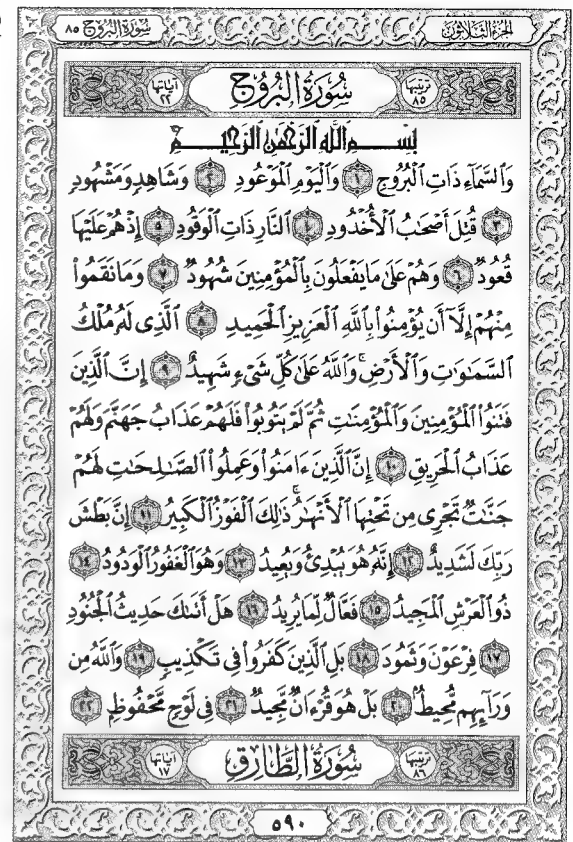 سُورَةُ البُرُوج ٨٥
الجزء الثلاثون
آياتها ٢٢
سُورَةُ البُرُوجِ
ترتيبها ٨٥
بِسْمِ ٱللَّهِ ٱلرَّحْمَٰنِ ٱلرَّحِيمِ
وَٱلسَّمَآءِ ذَاتِ ٱلْبُرُوجِ ١ وَٱلْيَوْمِ ٱلْمَوْعُودِ ٢ وَشَاهِدٍ وَمَشْهُودٍ
٣ قُتِلَ أَصْحَٰبُ ٱلْأُخْدُودِ ٤ ٱلنَّارِ ذَاتِ ٱلْوَقُودِ ٥ إِذْ هُمْ عَلَيْهَا
قُعُودٌ ٦ وَهُمْ عَلَىٰ مَا يَفْعَلُونَ بِٱلْمُؤْمِنِينَ شُهُودٌ ٧ وَمَا نَقَمُوا۟
مِنْهُمْ إِلَّآ أَن يُؤْمِنُوا۟ بِٱللَّهِ ٱلْعَزِيزِ ٱلْحَمِيدِ ٨ ٱلَّذِى لَهُۥ مُلْكُ
ٱلسَّمَٰوَٰتِ وَٱلْأَرْضِ ۚ وَٱللَّهُ عَلَىٰ كُلِّ شَىْءٍ شَهِيدٌ ٩ إِنَّ ٱلَّذِينَ
فَتَنُوا۟ ٱلْمُؤْمِنِينَ وَٱلْمُؤْمِنَٰتِ ثُمَّ لَمْ يَتُوبُوا۟ فَلَهُمْ عَذَابُ جَهَنَّمَ وَلَهُمْ
عَذَابُ ٱلْحَرِيقِ ١٠ إِنَّ ٱلَّذِينَ ءَامَنُوا۟ وَعَمِلُوا۟ ٱلصَّٰلِحَٰتِ لَهُمْ
جَنَّٰتٌ تَجْرِى مِن تَحْتِهَا ٱلْأَنْهَٰرُ ۚ ذَٰلِكَ ٱلْفَوْزُ ٱلْكَبِيرُ ١١ إِنَّ بَطْشَ
رَبِّكَ لَشَدِيدٌ ١٢ إِنَّهُۥ هُوَ يُبْدِئُ وَيُعِيدُ ١٣ وَهُوَ ٱلْغَفُورُ ٱلْوَدُودُ ١٤
ذُو ٱلْعَرْشِ ٱلْمَجِيدُ ١٥ فَعَّالٌ لِّمَا يُرِيدُ ١٦ هَلْ أَتَىٰكَ حَدِيثُ ٱلْجُنُودِ
١٧ فِرْعَوْنَ وَثَمُودَ ١٨ بَلِ ٱلَّذِينَ كَفَرُوا۟ فِى تَكْذِيبٍ ١٩ وَٱللَّهُ مِن
وَرَآئِهِم مُّحِيطٌۢ ٢٠ بَلْ هُوَ قُرْءَانٌ مَّجِيدٌ ٢١ فِى لَوْحٍ مَّحْفُوظٍۭ ٢٢
آياتها ١٧
سُورَةُ الطَّارِقِ
ترتيبها ٨٦
٥٩٠